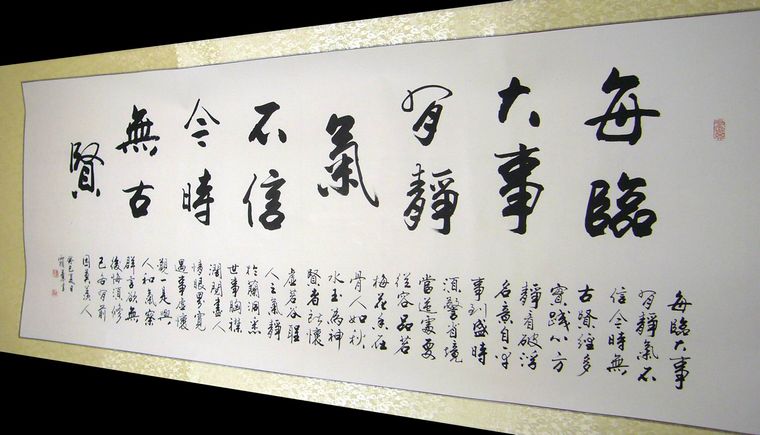 每臨
大事
有靜
氣
不信
今時
無古
賢
每臨大事
有靜氣不
信今時無
古賢經多
實踐心方
靜看破浮
名意自平
事到盛時
須警省境
當逆處要
從容品若
梅花香在
骨人如秋
水玉為神
賢者託懷
虛若谷聖
人之氣靜
於蘭洞悉
世事胸襟
濶閱盡人
情眼界寬
遇事虛懷
觀一是與
人和氣察
群言欲無
後悔須修
己各有前
因莫羨人
癸巳夏日